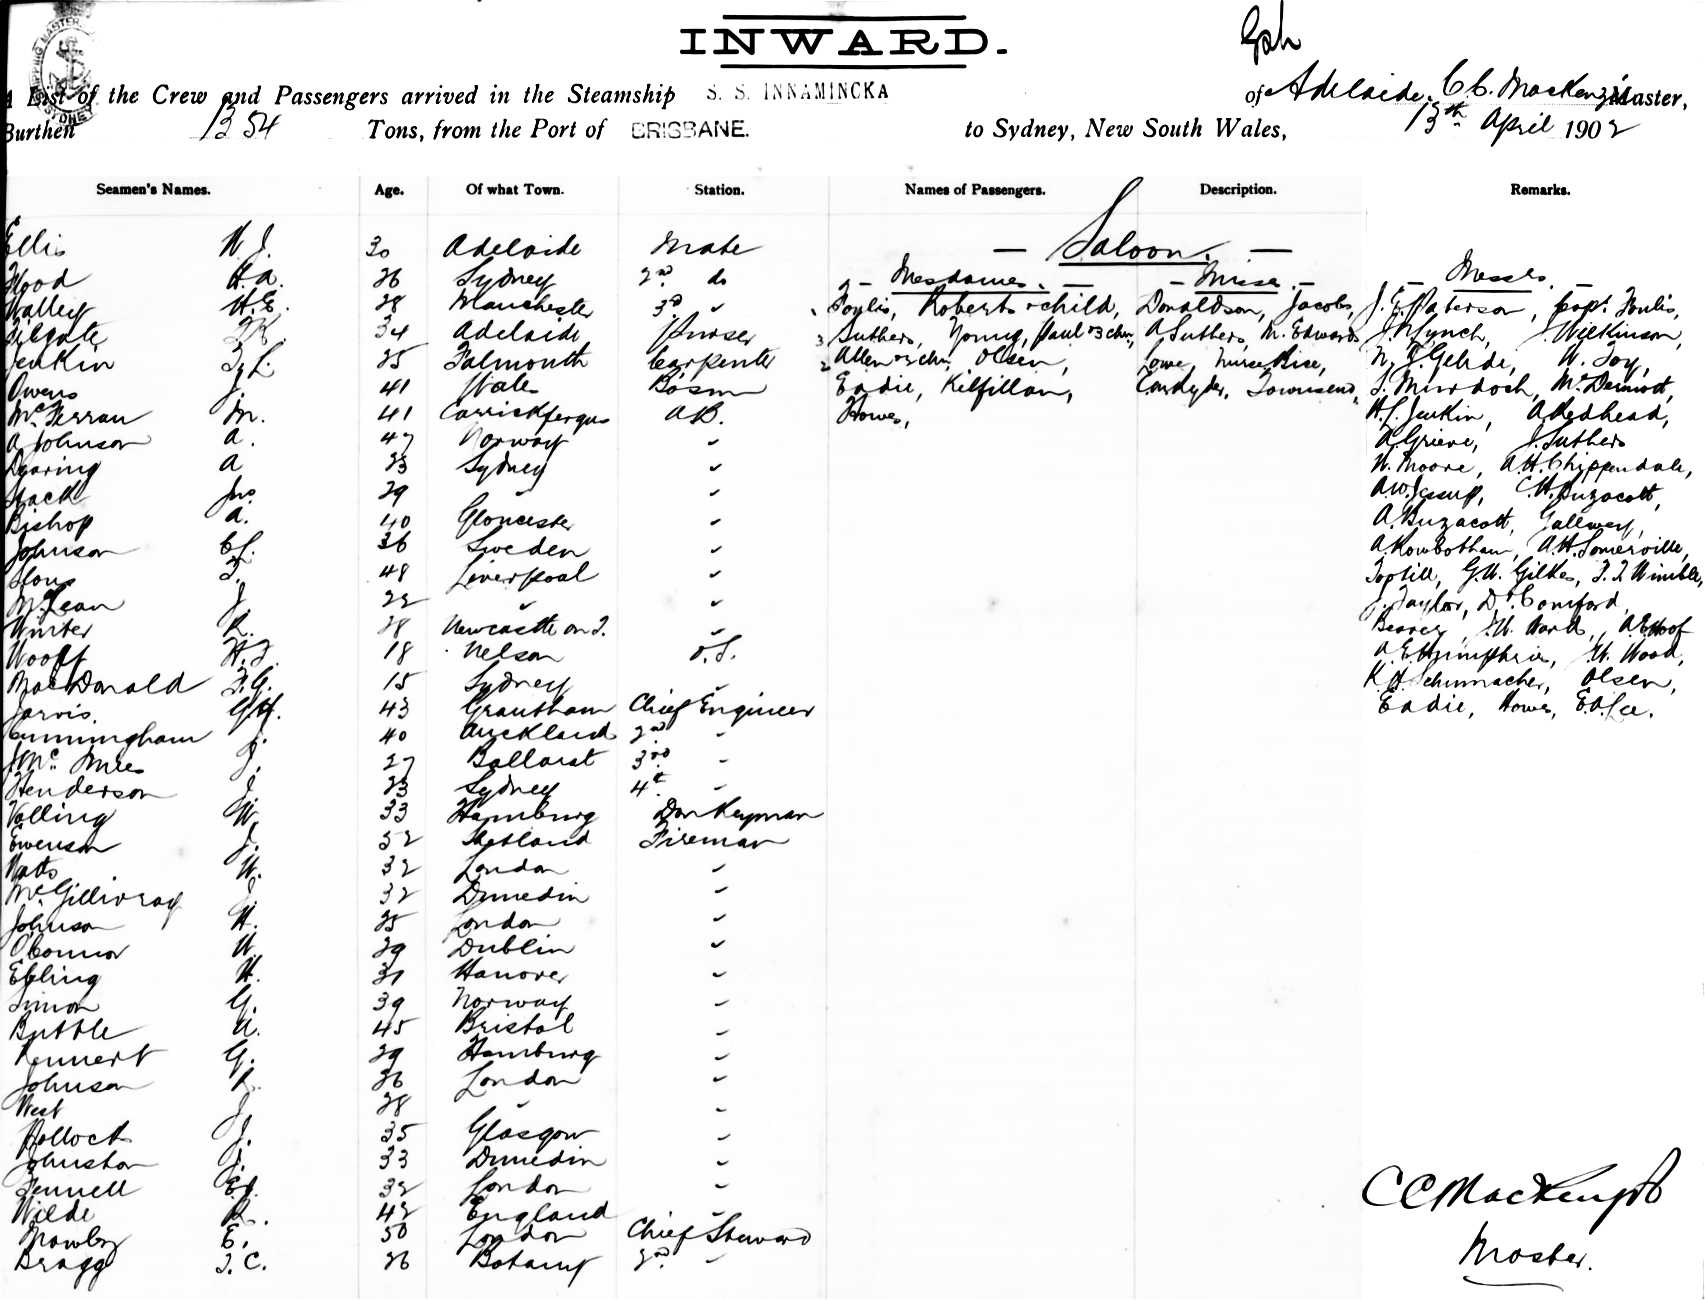 INWARD.
A List of the Crew and Passengers arrived in the Steamship S. S. INNAMINCKA of Adelaide, C.C. MacKenzie Master,
Burthen 1354 Tons, from the Port of BRISBANE. to Sydney, New South Wales, 13th April 1902
Seamen's Names. Age. Of what Town. Station. Names of Passengers. Description. Remarks.
— Saloon. —
Ellis W. J. 30 Adelaide Mate
— Mesdames. — — Misses. — — Messrs. —
Hood H. A. 26 Sydney 2nd do
Walley H. E. 28 Manchester 3rd " Foulis, Roberts & child, Donaldson, Jacobs, J. E. Paterson, Capt. Foulis,
34 Adelaide Purser Suthers, Young, Paul & 3 chn, A Suthers, M. Edwards J. Lynch, J. Wilkinson,
Jenkin F. L. 25 Falmouth Carpenter Allen & 2 chn, Olsen, Lowe, Nurse Rise, W. Joy,
Owens J. 41 Wales Bosun Eadie, Kilfillan, Townsend, T. Murdoch, McDermott,
McFerran M. 41 Carrickfergus A.B. Howes, H. L. Jenkin, A Redhead,
A Johnson A. 47 Norway " A. Grieve, J. Suthers
Dearing A 23 Sydney " W. Moore, A. H. Chippendale,
Slack Jno 29 " " A. W. Jessup, C. H. Buzacott,
Bishop A. 40 Gloucester " A. Buzacott, Gallwey,
Johnson C. F. 36 Sweden " A Rowbotham, A. H. Somerville,
F. 48 Liverpool " Topsill, G. W. Gilkes, F. T. Wimble,
McLean J. 22 " " J. Taylor, Dr. Comford,
Winter R. 28 Newcastle on T. " W. Ward, A. E. Hoof
Wooff H. F. 18 Nelson O.S. A. E. Humphris, W. Wood,
MacDonald F. G. 15 Sydney " K. A. Schumacher, Olsen,
Jarvis. G. H. 43 Grantham Chief Engineer Eadie, Howes, E. A. Lee.
Cunningham J. 40 Auckland 2nd "
McInnes J. 27 Ballarat 3rd "
Henderson J. 23 Sydney 4th "
Volling W. 33 Hamburg Donkeyman
Ewenson J. 52 Shetland Fireman
Watts W. 32 London "
McGillivray J. 32 Dunedin "
Johnson H. 25 London "
O'Connor W. 29 Dublin "
Ebling H. 31 Hanover "
Simon G. 39 Norway "
Buttle A. 45 Bristol "
Rennert G. 29 Hamburg "
Johnson R. 26 London "
West J. 28 " "
Pollock J. 35 Glasgow "
Johnston J. 33 Dunedin "
Fennell E. J. 32 London " C C MacKenzie
Wilde R. 42 England "
Mawby E. 50 London Chief Steward Master.
Bragg T. C. 26 Botany 2nd "